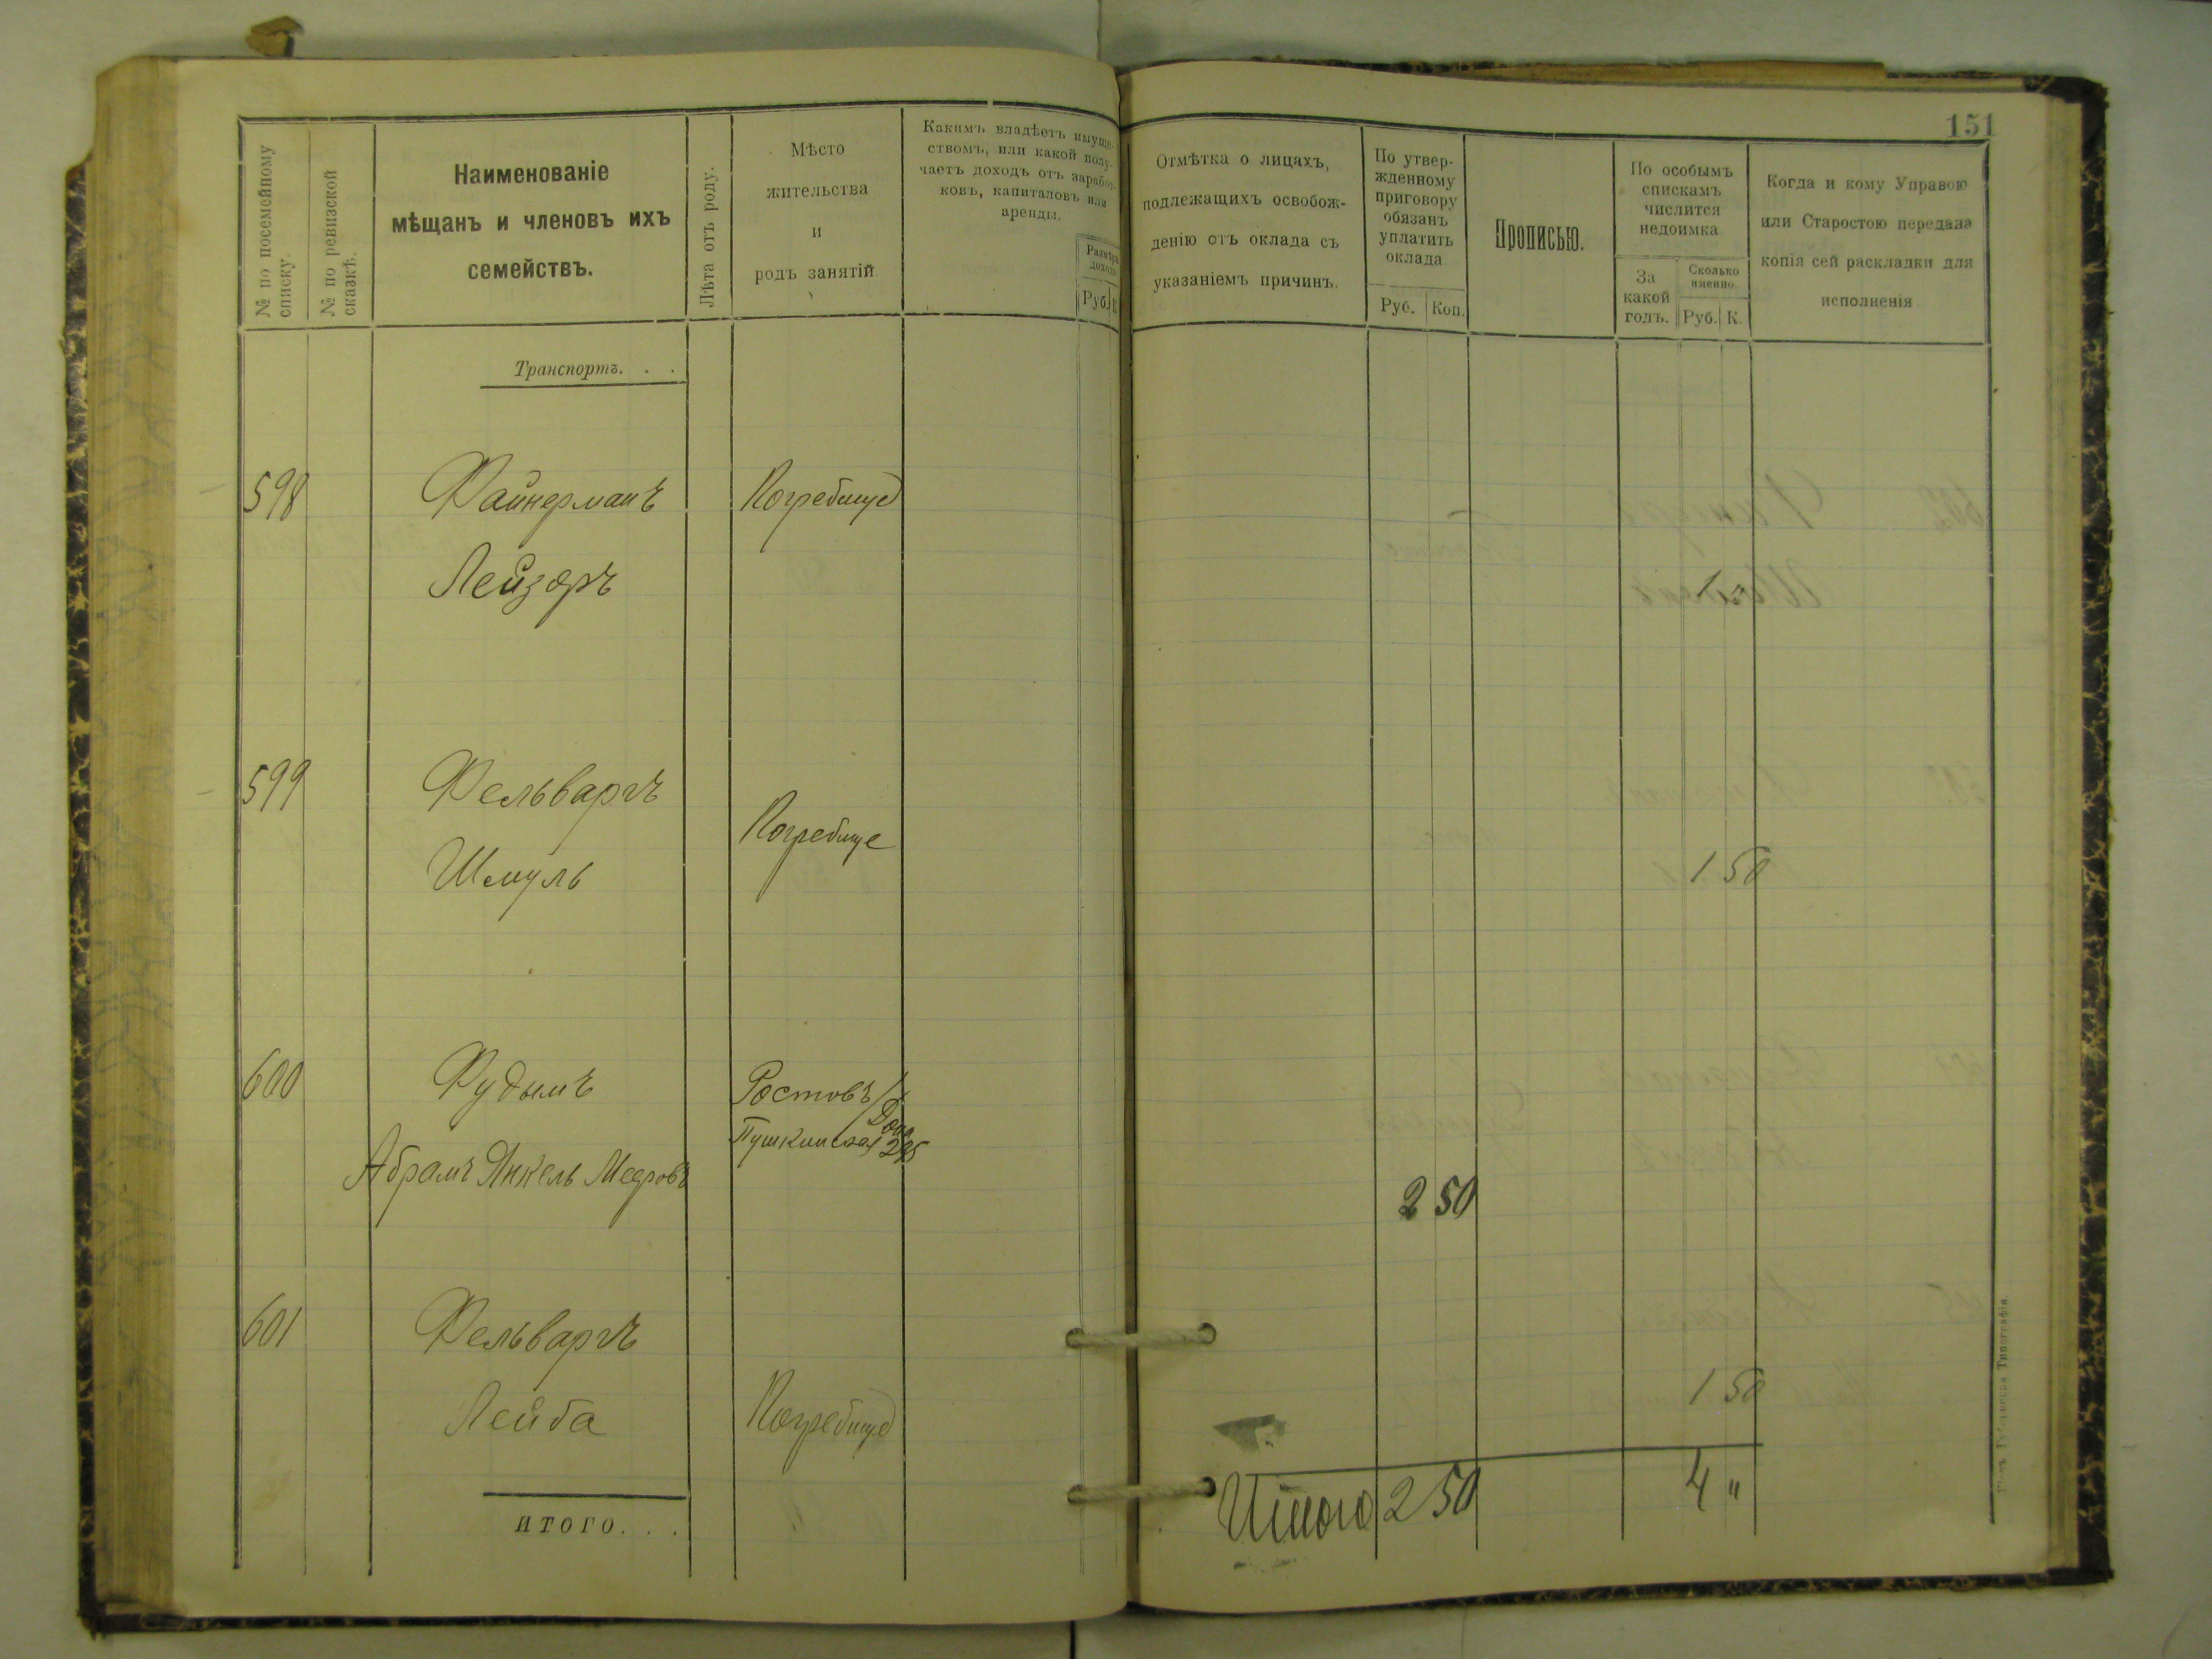 151
№ по посемейному
списку.
№ по ревизской
сказкѣ.
Наименованіе
мѣщанъ и членовъ ихъ
семействъ.
Лѣта отъ роду.
Мѣсто
жительства
и
родъ занятій
Какимъ владѣетъ имуще-
ствомъ, или какой полу-
чаетъ доходъ отъ заработ-
ковъ, капиталовъ или
аренды.
Размѣръ
дохода
Руб. К
Отмѣтка о лицахъ,
подлежащихъ освобож-
денію отъ оклада съ
указаніемъ причинъ.
По утвер-
жденному
приговору
обязанъ
уплатить
оклада
Руб. Коп.
Прописью.
По особымъ
спискамъ
числится
недоимка
За
какой
годъ.
Сколько
именно
Руб. К.
Когда и кому Управою
или Старостою передана
копія сей раскладки для
исполненія
Транспортъ. . .
598 Файнерманъ Погребище
Лейзоръ 1
599 Фельваргъ
Погребище
Шмуль 1 50
600 Фудымъ Ростовъ/Дона
Пушкинская
Абрамъ Янкель Мееровъ
2 50
601 Фельваргъ
Лейба Погребище 1 50
Итого 2 50 4 "
ИТОГО. . .